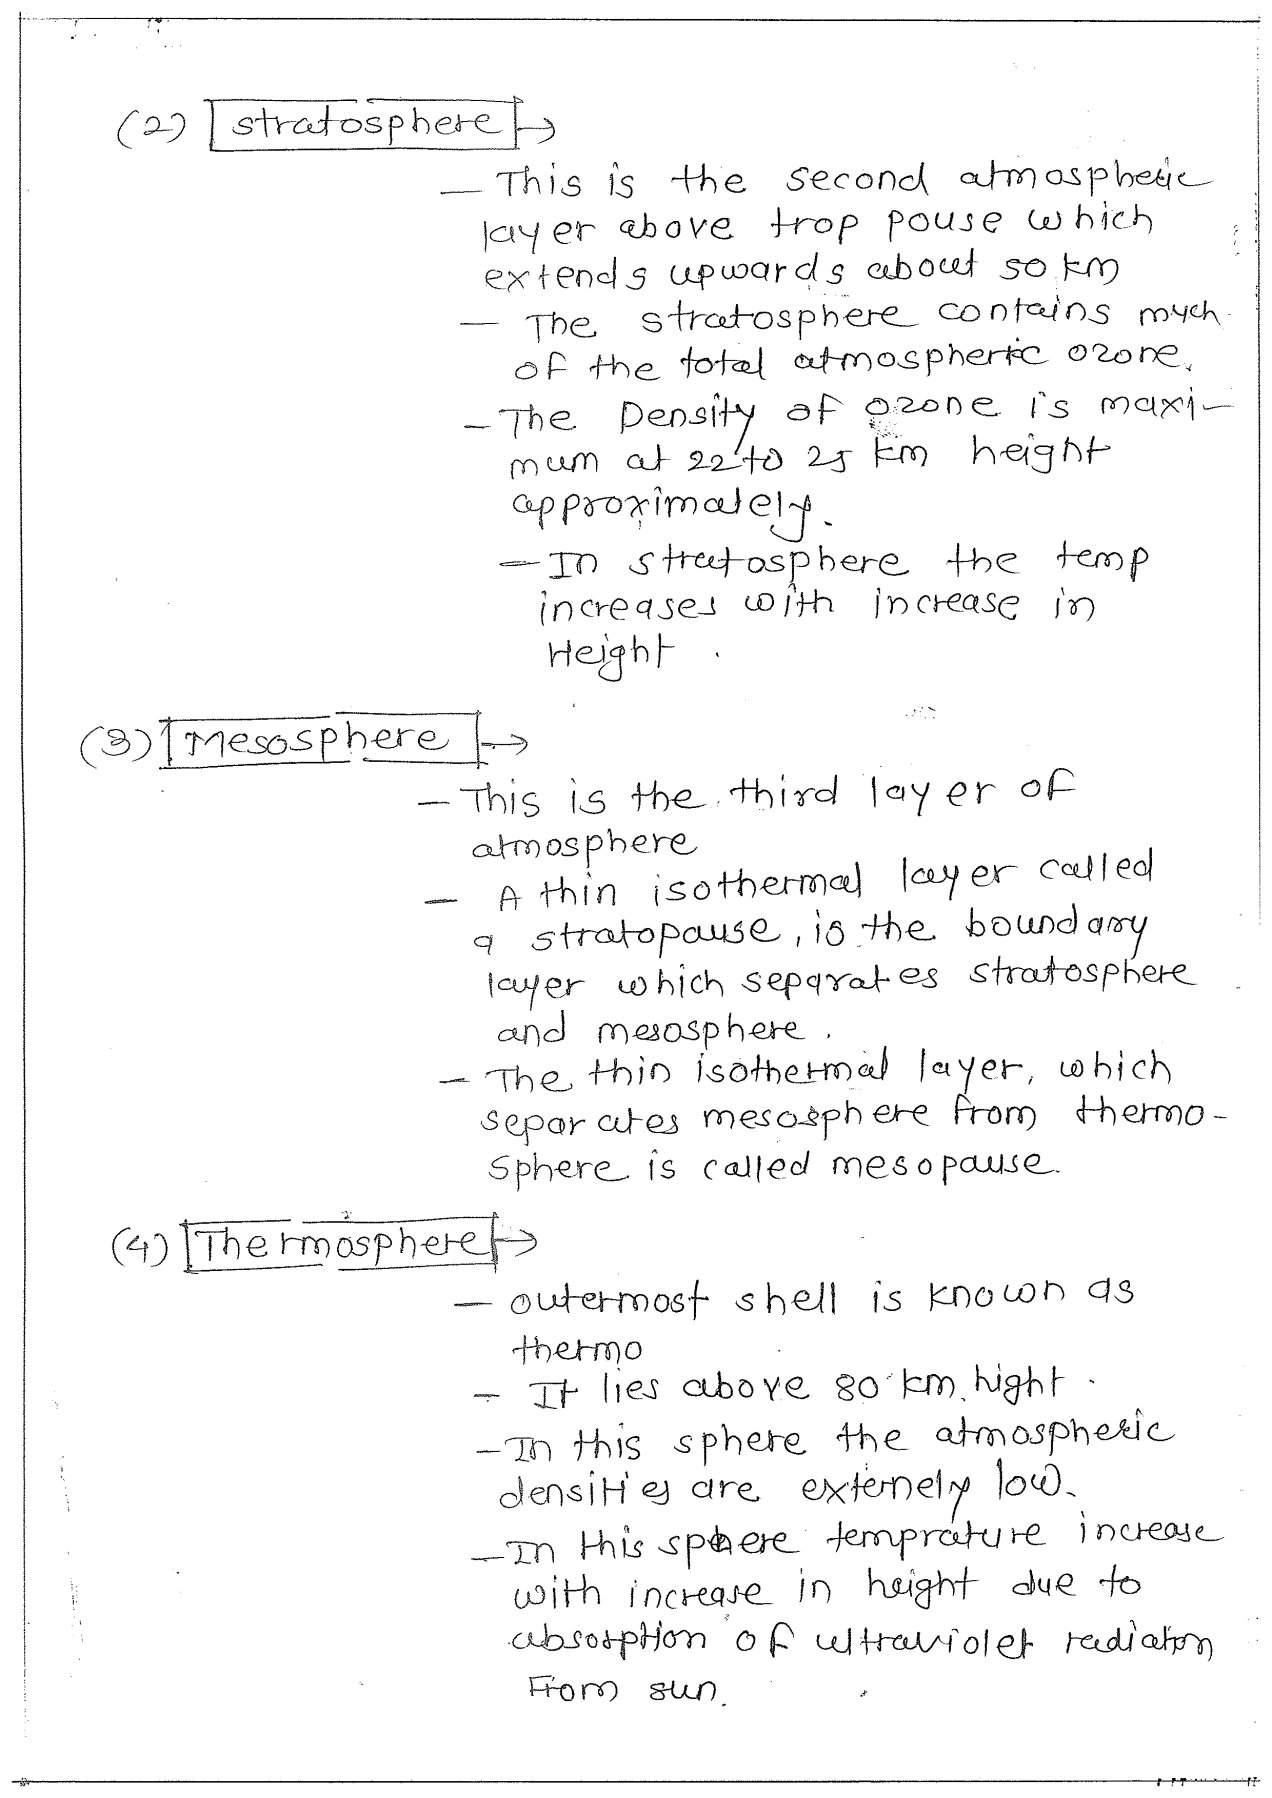 (2) stratosphere →
— This is the second atmospheric
layer above trop pouse which
extends upwards about 50 km
— The stratosphere contains much
of the total atmospheric ozone.
— The Density of ozone is maxi-
mum at 22 to 25 km height
approximately.
— In stratosphere the temp
increases with increase in
Height.
(3) Mesosphere →
— This is the third layer of
atmosphere
— A thin isothermal layer called
a stratopause, is the boundary
layer which separates stratosphere
and mesosphere.
— The thin isothermal layer, which
separates mesosphere from thermo-
sphere is called mesopause.
(4) Thermosphere →
— outermost shell is known as
thermo
— It lies above 80 km hight.
— In this sphere the atmospheric
densities are extemely low.
— In this sphere temprature increase
with increase in height due to
absorption of ultraviolet radiaton
From sun.